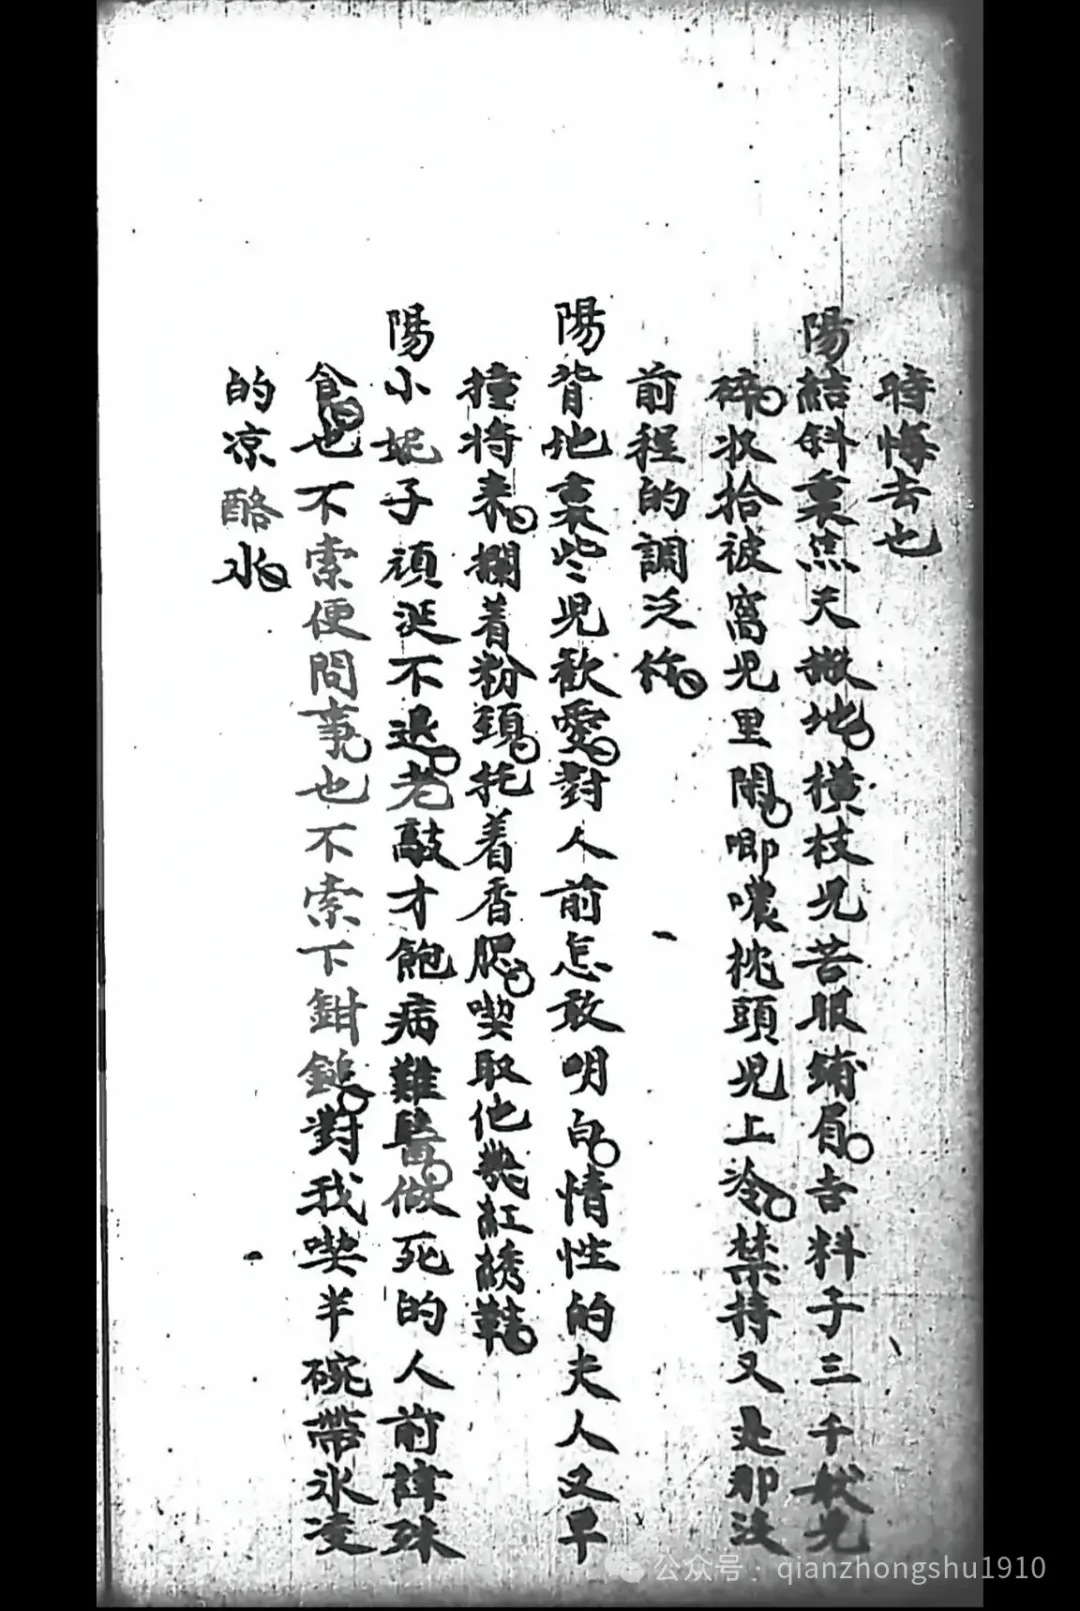 時悔去也
陽結斜裏焦天撇地橫枝児苦眼鋪眉吉料子三千般児
碎収拾被窩児里閑唧噥枕頭児上冷禁持又是那沒
前程的調泛作
陽背地裏些児歡愛對人前怎敢明白情性的夫人又早
撞将来攔着粉頸托着香腮喫取他幾紅綉鞋
陽小妮子頑涎不退老敲才飽病難醫做死的人前諱殊
食也不索便問事也不索下鉗鎚對我喫半碗帶氷凌
的凉酪水
公众号：qianzhongshu1910